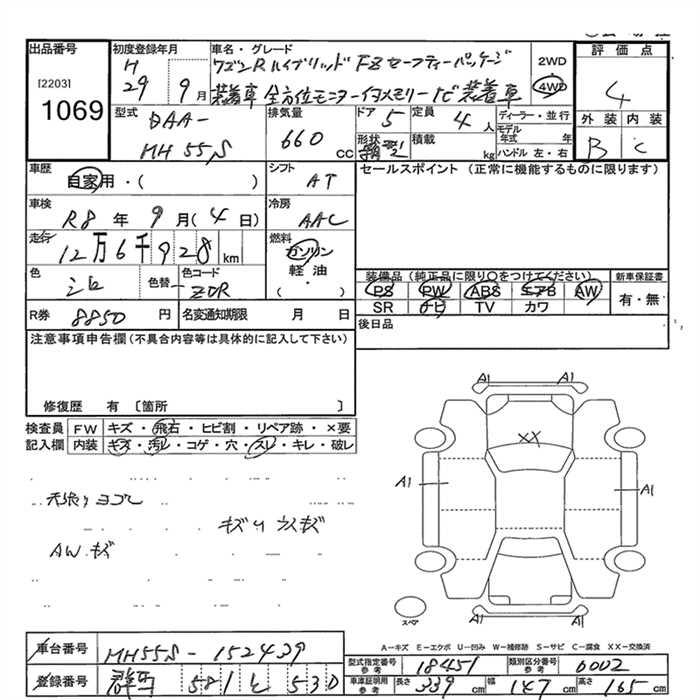 出品番号
[2203]
1069
初度登録年月
H
29 9月
車名・グレード
ワゴンRハイブリッド FZセーフティーパッケージ
装着車 全方位モニター付メモリーナビ装着車
2WD
4WD
評価点
4
外装 内装
B C
型式
DAA-
MH55S
排気量
660 CC
ドア
5
定員
4人
形状
積載
kg
ディーラー・並行
モデル年式 年
ハンドル 左・右
車歴
自家用・( )
シフト
AT
セールスポイント(正常に機能するものに限ります)
車検
R8年9月(4日)
冷房
AAC
走行
12万6千928km
燃料
ガソリン
軽油
( )
色
シロ
色替
色コード
ZVR
装備品(純正品に限り○をつけてください)
PS PW ABS エアB AW
SR ナビ TV カワ
新車保証書
有・無
R券 8850円
名変通知期限 月 日
後日品
注意事項申告欄(不具合内容等は具体的に記入して下さい)
修復歴 有〔箇所 〕
検査員記入欄
FW キズ・飛石・ヒビ割・リペア跡・×要
内装 キズ・汚レ・コゲ・穴・スレ・キレ・破レ
天張りヨゴレ
キズ サ ウスキズ
AW キズ
A1 A1
XX
A1 A1
A1 A1
スペア
A-キズ E-エクボ U-凹み W-補修跡 S-サビ C-腐食 XX-交換済
車台番号 MH55S-152439
型式指定番号 参考 18451
類別区分番号 参考 0002
登録番号 群馬 581 と 530
車庫証明用 参考 長さ 339cm 幅 147cm 高さ 165cm